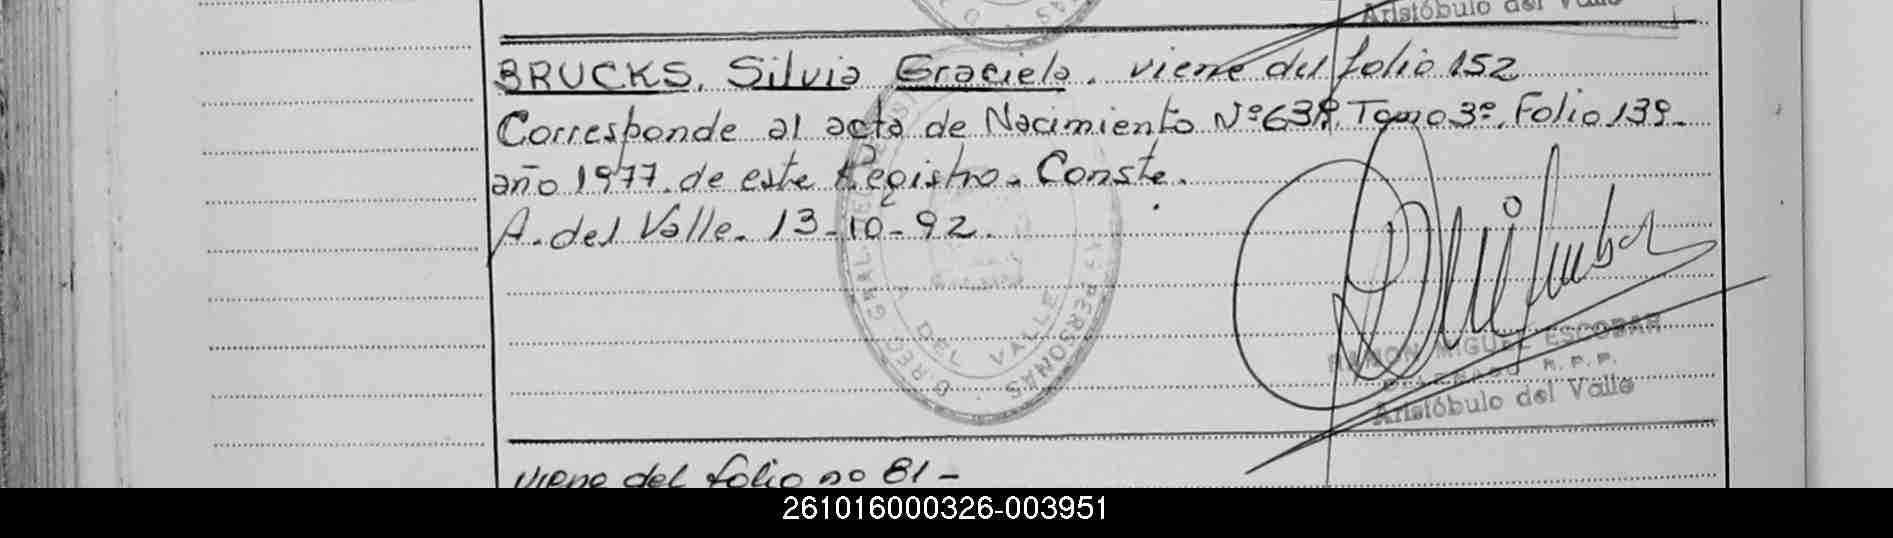 Aristóbulo del Valle
BRUCKS, Silvia Graciela. viene del folio 152
Corresponde al acta de Nacimiento Nº 639, Tomo 3º, Folio 139-
año 1977. de este Registro. Conste.
A. del Valle. 13-10-92.
DIREC GRAL DE
PERSONAS
DEL VALLE
RAMON MIGUEL ESCOBAR
R. P. P.
Aristóbulo del Valle
viene del folio no 81-
261016000326-003951